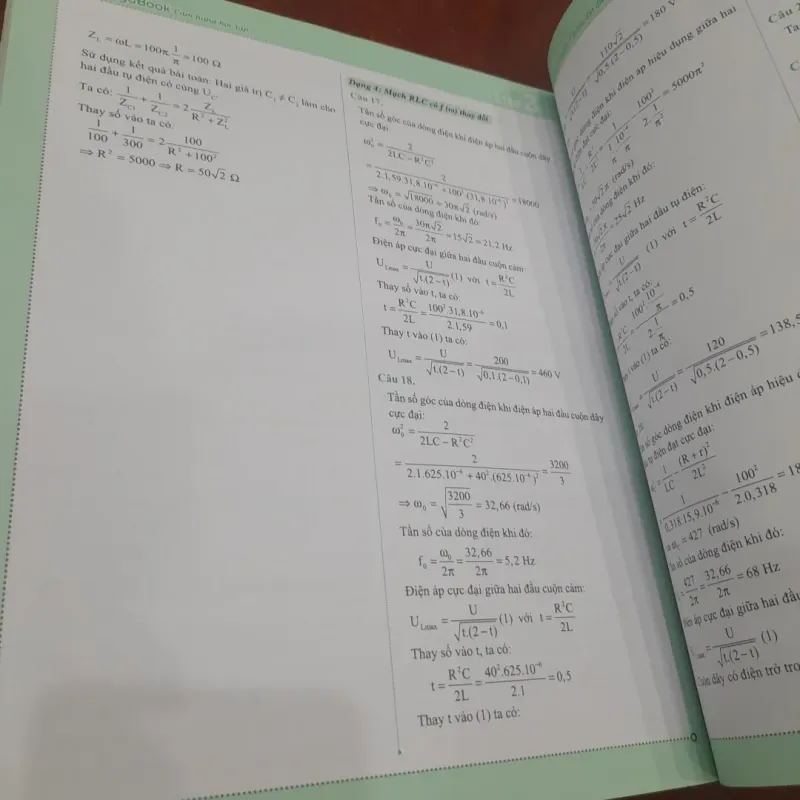 Book Cảm hứng học tập
Z_L = ωL = 100π.1/π = 100 Ω
Sử dụng kết quả bài toán: Hai giá trị C₁ ≠ C₂ làm cho
hai đầu tụ điện có cùng U_C.
Ta có: 1/Z_C1 + 1/Z_C2 = 2 Z_L/(R² + Z_L²)
Thay số vào ta có:
1/100 + 1/300 = 2 100/(R² + 100²)
⇒ R² = 5000 ⇒ R = 50√2 Ω
Dạng 4: Mạch RLC có f (ω) thay đổi
Câu 17.
Tần số góc của dòng điện khi điện áp hai đầu cuộn dây
cực đại
ω₀² = 2/(2LC − R²C²)
= 2/(2.1,59.31,8.10⁻⁶ + 100².(31,8.10⁻⁶)²) = 18000
⇒ ω₀ = √18000 = 30π√2 (rad/s)
Tần số của dòng điện khi đó:
f₀ = ω₀/2π = 30π√2/2π = 15√2 = 21,2 Hz
Điện áp cực đại giữa hai đầu cuộn cảm:
U_Lmax = U/√(t.(2−t)) (1) với t = R²C/2L
Thay số vào t, ta có:
t = R²C/2L = 100².31,8.10⁻⁶/2.1,59 = 0,1
Thay t vào (1) ta có:
U_Lmax = U/√(t.(2−t)) = 200/√(0,1.(2−0,1)) = 460 V
Câu 18.
Tần số góc của dòng điện khi điện áp hai đầu cuộn dây
cực đại:
ω₀² = 2/(2LC − R²C²)
= 2/(2.1.625.10⁻⁶ + 40².(625.10⁻⁶)²) = 3200/3
⇒ ω₀ = √(3200/3) = 32,66 (rad/s)
Tần số của dòng điện khi đó:
f₀ = ω₀/2π = 32,66/2π = 5,2 Hz
Điện áp cực đại giữa hai đầu cuộn cảm:
U_Lmax = U/√(t.(2−t)) (1) với t = R²C/2L
Thay số vào t, ta có:
t = R²C/2L = 40².625.10⁻⁶/2.1 = 0,5
Thay t vào (1) ta có:
110√2/√(0,5.(2−0,5)) = 180 V
dòng điện khi điện áp hiệu dụng giữa hai
điện cực đại:
100²/ = 5000π²
(rad/s)
của dòng điện khi đó:
= 25√2 Hz
đại giữa hai đầu tụ điện:
U/√(t.(2−t)) (1) với t = R²C/2L
số vào t, ta có:
R²C/2L = = 0,5
vào (1) ta có:
U/√(t.(2−t)) = 120/√(0,5.(2−0,5)) = 138,5
số góc dòng điện khi điện áp hiệu
tụ điện đạt cực đại:
1/LC (R + r)²/2L²
1/0,318.15,9.10⁻⁶ − 100²/2.0,318 = 18
ω₀ = 427 (rad/s)
số của dòng điện khi đó:
427/2π = 32,66/2π = 68 Hz
áp cực đại giữa hai đầu
= U/√(t.(2−t)) (1)
Cuộn dây có điện trở tro
Câu 2
Ta
C